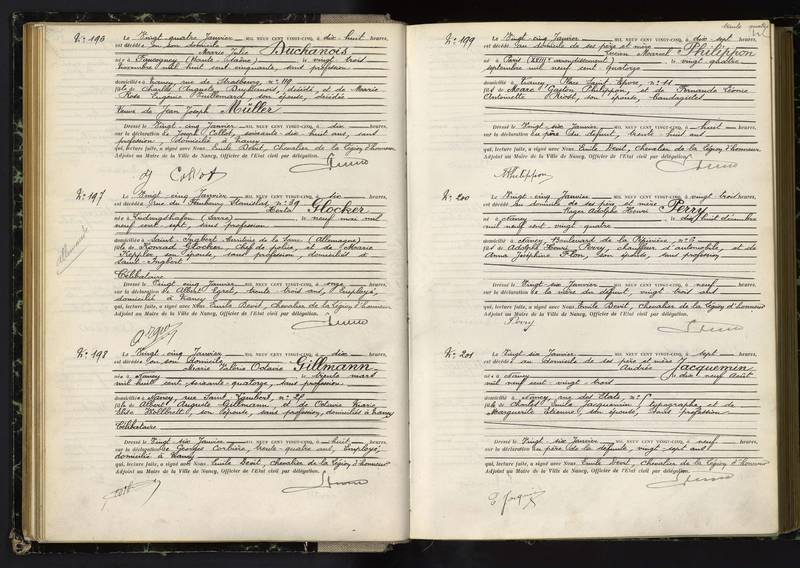 N° 196
Le Vingt quatre Janvier MIL NEUF CENT VINGT-CINQ, à dix huit heures,
est décédée en son domicile
Marie Julie Duchanois
née à Faucogney (Haute-Saône) le vingt trois
novembre mil huit cent cinquante, sans profession
domiciliée à Nancy, rue de Strasbourg, n° 119
fille de Charles Auguste Duchanois, décédé, et de Marie
Rose Eugénie Vuillemard, son épouse, décédée
Veuve de Jean Joseph Müller
Dressé le Vingt cinq Janvier MIL NEUF CENT VINGT-CINQ, à dix heures,
sur la déclaration de Joseph Collot, soixante dix huit ans, sans
profession, domicilié à Nancy
qui, lecture faite, a signé avec Nous Emile Devit, Chevalier de la Légion d'honneur
Adjoint au Maire de la Ville de Nancy, Officier de l'Etat civil par délégation.
J Collot
N° 197
Allemande
Le Vingt cinq Janvier MIL NEUF CENT VINGT-CINQ, à six heures,
est décédée rue du Faubourg Stanislas n° 39
Herta Glocker
née à Ludwigshafen le neuf mai mil
neuf cent sept, sans profession
domiciliée à Saint Ingbert Territoire de la Sarre (Allemagne)
fille de Konrad Glocker, Chef de police, et de Marie
Keppler son épouse, sans profession, domiciliés à
Saint-Ingbert
Célibataire
Dressé le Vingt cinq Janvier MIL NEUF CENT VINGT-CINQ, à onze heures,
sur la déclaration de Albert Egret, trente trois ans, Employé,
domicilié à Nancy
qui, lecture faite, a signé avec Nous Emile Devit, Chevalier de la Légion d'honneur
Adjoint au Maire de la Ville de Nancy, Officier de l'Etat civil par délégation.
N° 198
Le Vingt cinq Janvier MIL NEUF CENT VINGT-CINQ, à dix heures,
est décédée en son domicile
Marie Valérie Octavie Gillmann
née à Nancy le trente mars
mil huit cent soixante quatorze, sans profession
domiciliée à Nancy, rue Saint Lambert, n° 28
fille de Albert Auguste Gillmann, et de Octavie Marie
Elisa Wollbrett, son épouse, sans profession, domiciliés à Nancy
Célibataire
Dressé le Vingt six Janvier MIL NEUF CENT VINGT-CINQ, à huit heures,
sur la déclaration de Georges Corbière, trente quatre ans, Employé,
domicilié à Nancy
qui, lecture faite, a signé avec Nous Emile Devit, chevalier de la Légion d'honneur
Adjoint au Maire de la Ville de Nancy, Officier de l'Etat civil par délégation.
trente quatre
N° 199
Le Vingt cinq Janvier MIL NEUF CENT VINGT-CINQ, à dix sept heures,
est décédé au domicile de ses père et mère
Lucien Marcel Philippon
né à Paris (XVIII° arrondissement) le vingt quatre
septembre mil neuf cent quatorze
domicilié à Nancy Place Saint Epvre, n° 11
fils de Marc Gaston Philippon, et de Fernande Léonie
Antoinette Prost, son épouse, bandagistes
Dressé le Vingt six Janvier MIL NEUF CENT VINGT-CINQ, à huit heures,
sur la déclaration du père du défunt, trente huit ans
qui, lecture faite, a signé avec Nous Emile Devit, Chevalier de la Légion d'honneur
Adjoint au Maire de la Ville de Nancy, Officier de l'Etat civil par délégation.
Philippon
N° 200
Le Vingt cinq Janvier MIL NEUF CENT VINGT-CINQ, à vingt trois heures,
est décédé au domicile de ses père et mère
Roger Adolphe Henri Perry
né à Nancy le dix huit décembre
mil neuf cent vingt quatre
domicilié à Nancy, Boulevard de la Pépinière, n° 6
fils de Adolphe Henri Perry, chauffeur d'automobile, et de
Anna Joséphine Flon, son épouse, sans profession
Dressé le Vingt six Janvier MIL NEUF CENT VINGT-CINQ, à neuf heures,
sur la déclaration de la mère du défunt, vingt trois ans
qui, lecture faite, a signé avec Nous Emile Devit, Chevalier de la Légion d'honneur
Adjoint au Maire de la Ville de Nancy, Officier de l'Etat civil par délégation.
Perry
N° 201
Le Vingt six Janvier MIL NEUF CENT VINGT-CINQ, à sept heures,
est décédée au domicile de ses père et mère
Andrée Jacquemin
née à Nancy le dix neuf Août
mil neuf cent vingt trois
domiciliée à Nancy, rue des Etats, n° 5
fille de Charles Emile Jacquemin, typographe, et de
Marguerite Etienne, son épouse, sans profession
Dressé le Vingt six Janvier MIL NEUF CENT VINGT-CINQ, à neuf heures,
sur la déclaration du père de la défunte, vingt sept ans
qui, lecture faite, a signé avec Nous Emile Devit, chevalier de la Légion d'honneur
Adjoint au Maire de la Ville de Nancy, Officier de l'Etat civil par délégation.